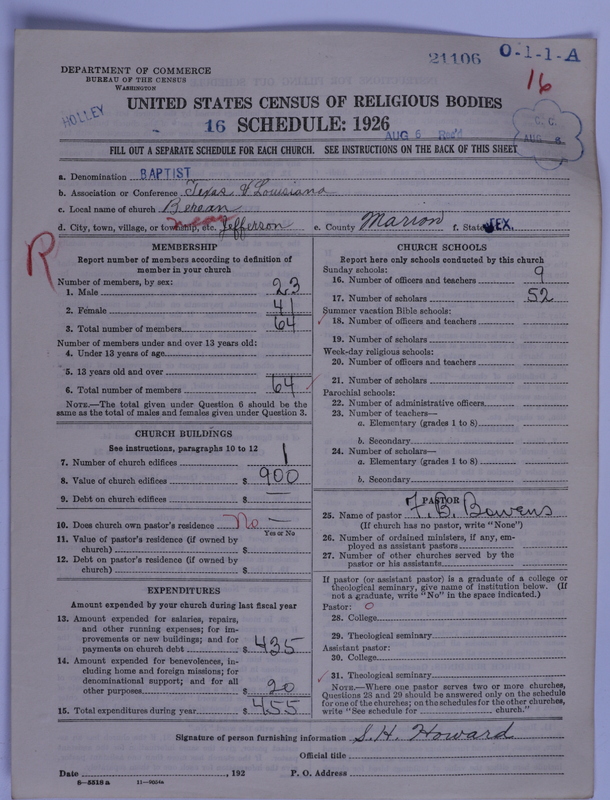 21106 O-1-1-A
16
DEPARTMENT OF COMMERCE
BUREAU OF THE CENSUS
WASHINGTON
UNITED STATES CENSUS OF RELIGIOUS BODIES
HOLLEY
16 SCHEDULE: 1926
AUG 6 Rec'd
C. C.
AUG 8
FILL OUT A SEPARATE SCHEDULE FOR EACH CHURCH. SEE INSTRUCTIONS ON THE BACK OF THIS SHEET
a. Denomination BAPTIST
b. Association or Conference Texas & Louisiana
c. Local name of church Berean
near
d. City, town, village, or township, etc. Jefferson e. County Marion f. State TEX.
R
MEMBERSHIP
Report number of members according to definition of
member in your church
Number of members, by sex:
1. Male 23
2. Female 41
3. Total number of members 64
Number of members under and over 13 years old:
4. Under 13 years of age
5. 13 years old and over
6. Total number of members 64
NOTE.—The total given under Question 6 should be the
same as the total of males and females given under Question 3.
CHURCH BUILDINGS
See instructions, paragraphs 10 to 12
7. Number of church edifices 1
8. Value of church edifices $ 900
9. Debt on church edifices $ —
10. Does church own pastor's residence No —
Yes or No
11. Value of pastor's residence (if owned by
church) $
12. Debt on pastor's residence (if owned by
church) $
EXPENDITURES
Amount expended by your church during last fiscal year
13. Amount expended for salaries, repairs,
and other running expenses; for im-
provements or new buildings; and for
payments on church debt $ 435
14. Amount expended for benevolences, in-
cluding home and foreign missions; for
denominational support; and for all
other purposes $ 20
15. Total expenditures during year $ 455
CHURCH SCHOOLS
Report here only schools conducted by this church
Sunday schools:
16. Number of officers and teachers 9
17. Number of scholars 52
Summer vacation Bible schools:
18. Number of officers and teachers
19. Number of scholars
Week-day religious schools:
20. Number of officers and teachers
21. Number of scholars
Parochial schools:
22. Number of administrative officers
23. Number of teachers—
a. Elementary (grades 1 to 8)
b. Secondary
24. Number of scholars—
a. Elementary (grades 1 to 8)
b. Secondary
PASTOR
25. Name of pastor F. B. Bowens
(If church has no pastor, write "None")
26. Number of ordained ministers, if any, em-
ployed as assistant pastors
27. Number of other churches served by the
pastor or his assistants
If pastor (or assistant pastor) is a graduate of a college or
theological seminary, give name of institution below. (If
not a graduate, write "No" in the space indicated.)
Pastor: 0
28. College
29. Theological seminary
Assistant pastor:
30. College
31. Theological seminary
NOTE.—Where one pastor serves two or more churches,
Questions 28 and 29 should be answered only on the schedule
for one of the churches; on the schedules for the other churches,
write "See schedule for church."
Signature of person furnishing information S. H. Howard
Official title
Date , 192 P. O. Address
8—5518 a 11—9654a